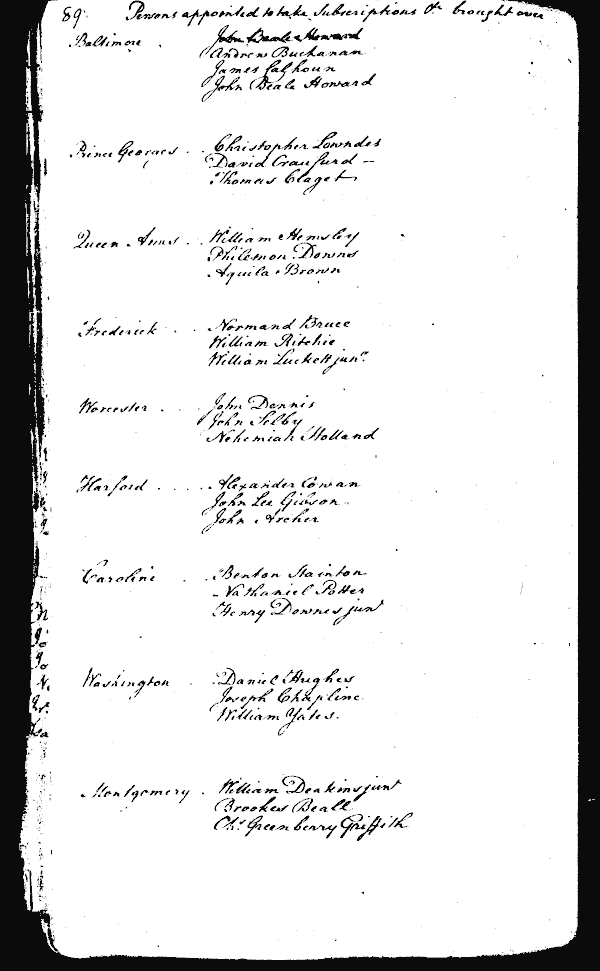 89. Persons appointed to take Subscriptions &c brought over
Baltimore . John Beale Howard
Andrew Buchanan
James Calhoun
John Beale Howard
Prince Georges . . Christopher Lowndes
David Craufurd —
Thomas Claget
Queen Anns . . William Hemsley
Philemon Downes
Aquila Brown
Frederick . . Normand Bruce
William Ritchie
William Luckett junr.
Worcester . . . John Dennis
John Selby
Nehemiah Holland
Harford . . . . . Alexander Cowan
John Lee Gibson
John Archer
Caroline . . Benton Stainton
Nathaniel Potter
Henry Downes junr
Washington . . Daniel Hughes
Joseph Chapline
William Yates.
Montgomery . William Deakins junr
Brooke Beall
Chs. Greenberry Griffith